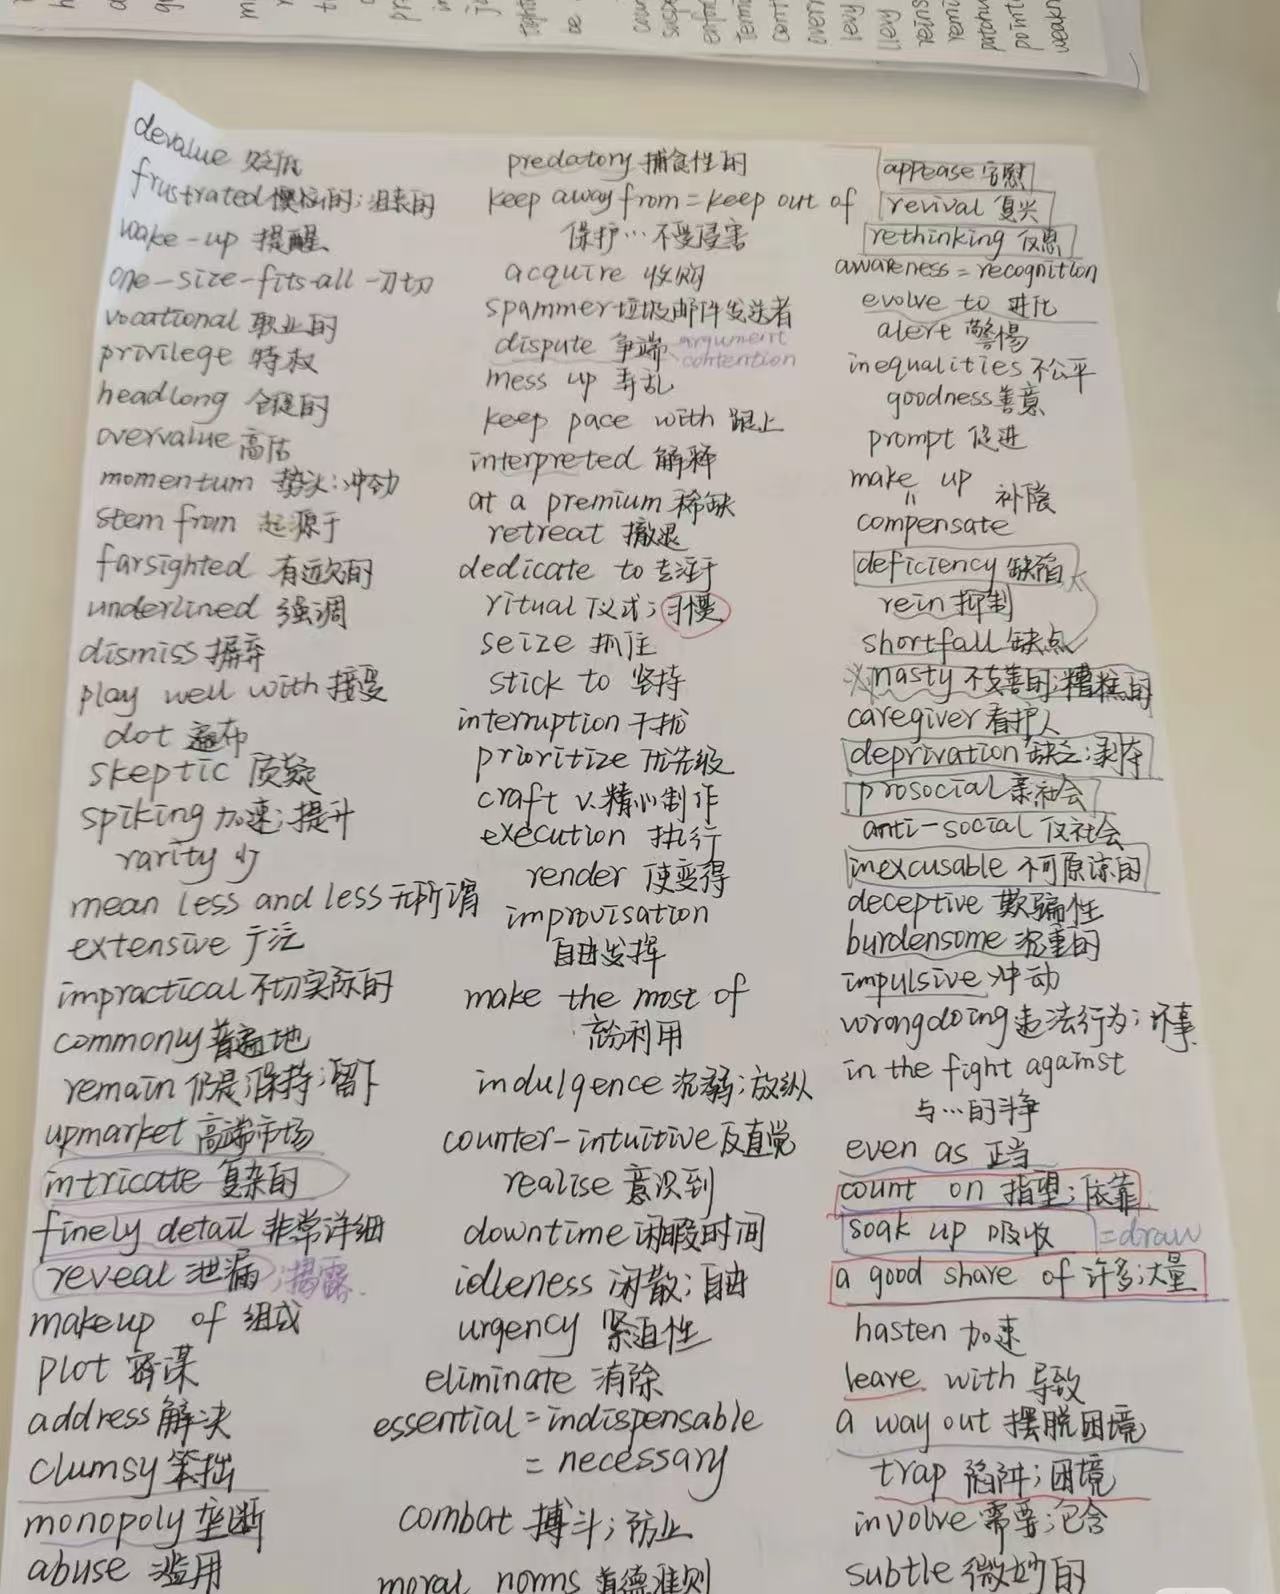 devalue 贬低
frustrated 懊恼的；沮丧的
wake-up 提醒
one-size-fits-all 一刀切
vocational 职业的
privilege 特权
headlong 仓促的
overvalue 高估
momentum 势头；冲劲
stem from 起源于
farsighted 有远见的
underlined 强调
dismiss 摒弃
play well with 接受
dot 遍布
skeptic 质疑
spiking 加速；提升
rarity 少
mean less and less 无所谓
extensive 广泛
impractical 不切实际的
commonly 普遍地
remain 仍是；保持；留下
upmarket 高端市场
intricate 复杂的
finely detail 非常详细
reveal 泄漏；揭露
makeup of 组成
plot 密谋
address 解决
clumsy 笨拙
monopoly 垄断
abuse 滥用
predatory 捕食性的
keep away from = keep out of
保护…不受侵害
acquire 收购
spammer 垃圾邮件发送者
dispute 争端 argument
contention
mess up 弄乱
keep pace with 跟上
interpreted 解释
at a premium 稀缺
retreat 撤退
dedicate to 专注于
ritual 仪式；习惯
seize 抓住
stick to 坚持
interruption 干扰
prioritize 优先级
craft v.精心制作
execution 执行
render 使变得
improvisation
自由发挥
make the most of
充分利用
indulgence 沉溺；放纵
counter-intuitive 反直觉
realise 意识到
downtime 闲暇时间
idleness 闲散；自由
urgency 紧迫性
eliminate 消除
essential = indispensable
= necessary
combat 搏斗；防止
moral norms 道德准则
appease 安慰
revival 复兴
rethinking 反思
awareness = recognition
evolve to 进化
alert 警惕
inequalities 不公平
goodness 善意
prompt 促进
make up 补偿
=
compensate
deficiency 缺陷
rein 抑制
shortfall 缺点
nasty 不友善的；糟糕的
caregiver 看护人
deprivation 缺乏；剥夺
prosocial 亲社会
anti-social 反社会
inexcusable 不可原谅的
deceptive 欺骗性
burdensome 沉重的
impulsive 冲动
wrongdoing 违法行为；坏事
in the fight against
与…的斗争
even as 正当
count on 指望；依靠
soak up 吸收 =draw
a good share of 许多；大量
hasten 加速
leave with 导致
a way out 摆脱困境
trap 陷阱；困境
involve 需要；包含
subtle 微妙的